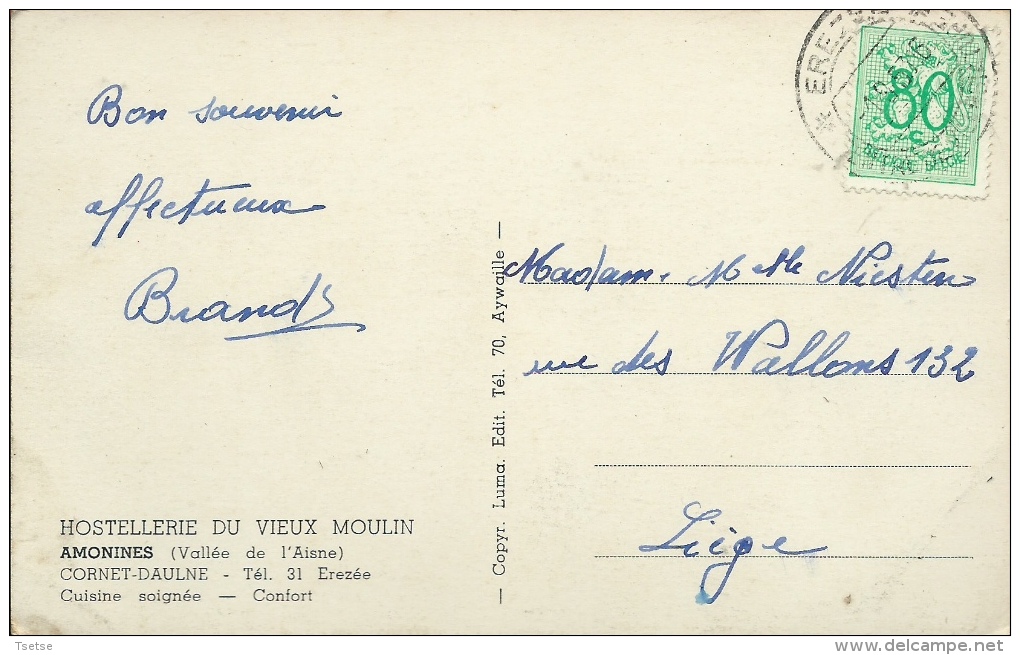 Bon souvenir
affectueux
Brands
HOSTELLERIE DU VIEUX MOULIN
AMONINES (Vallée de l'Aisne)
CORNET-DAULNE - Tél. 31 Erezée
Cuisine soignée — Confort
— Copyr. Luma. Edit. Tél. 70, Aywaille —
80
BELGIQUE BELGIE
Madame. M elle Niesten
rue des Wallons 132
Liège
Tsetse
www.delcampe.net